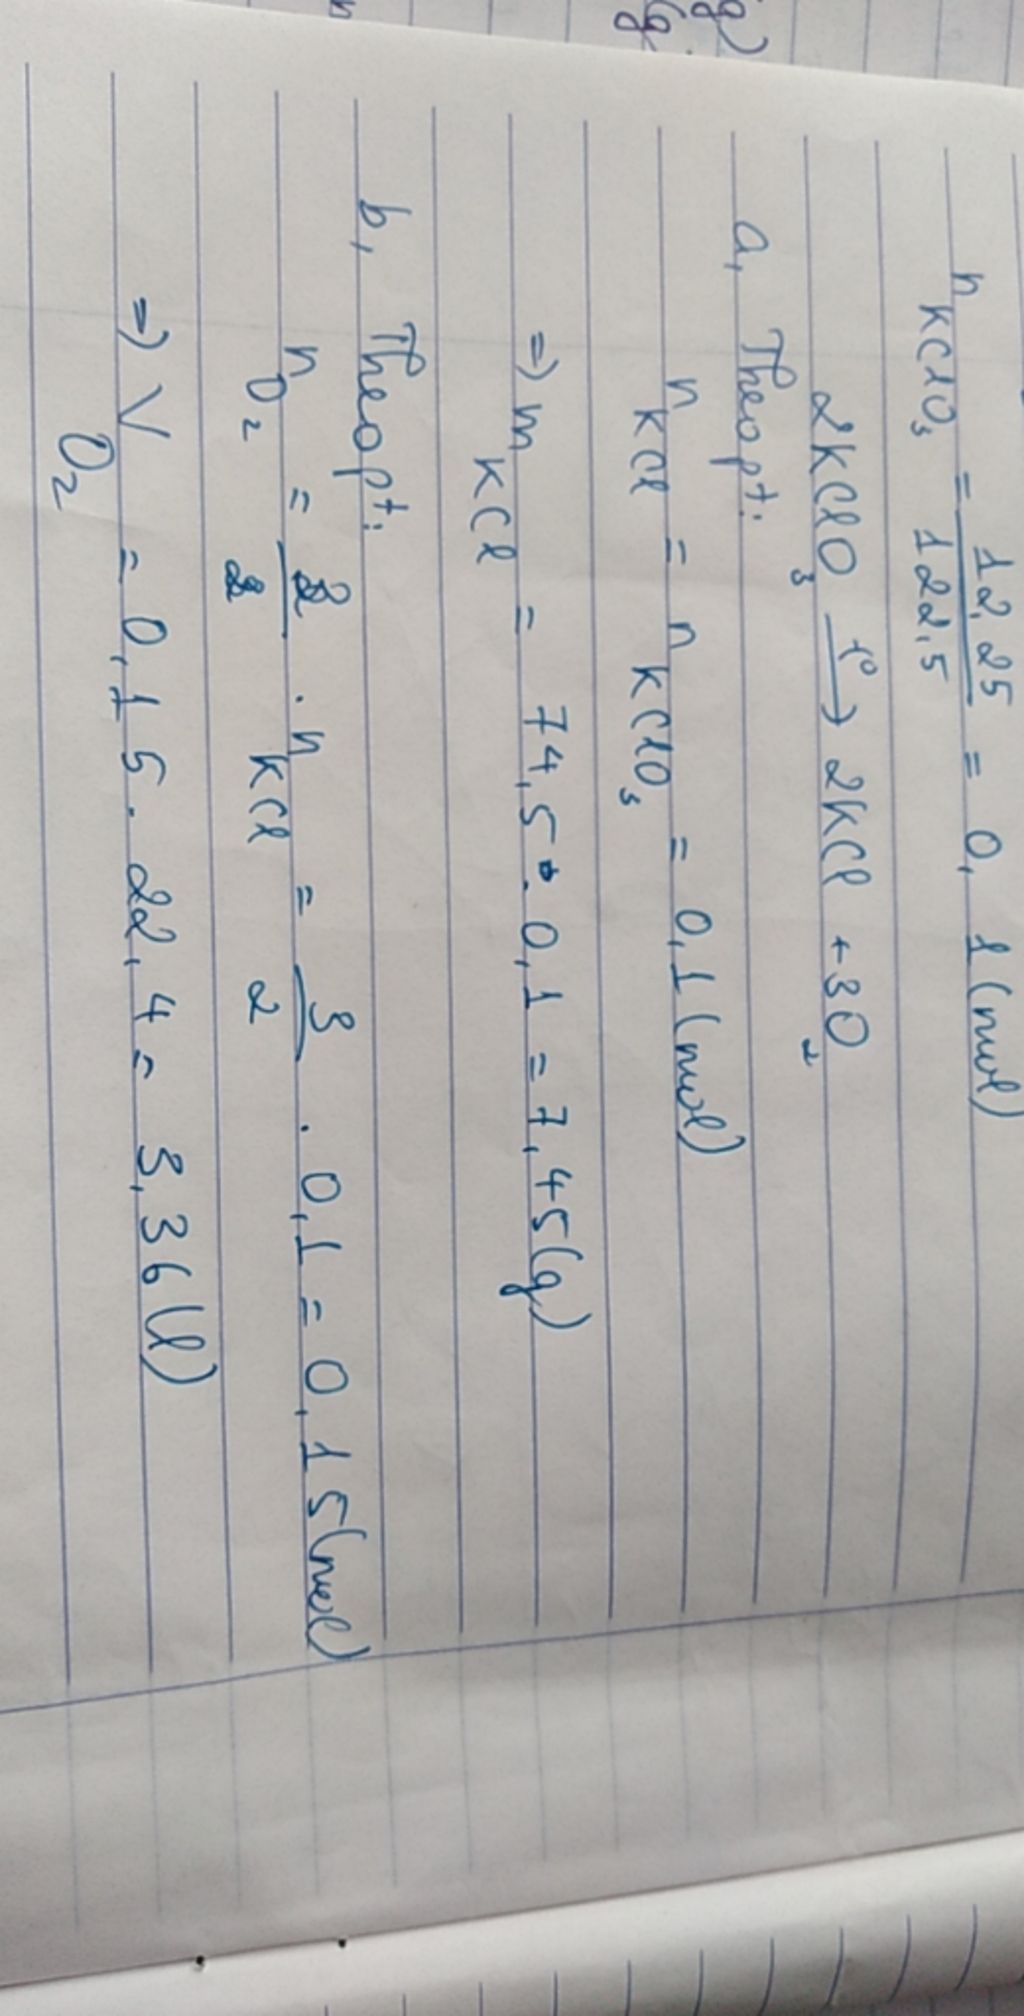 n KClO3 = 12,25 / 122,5 = 0,1 (mol)
2KClO3 t°→ 2KCl + 3O2
a, Theo pt:
n KCl = n KClO3 = 0,1 (mol)
=> m KCl = 74,5 . 0,1 = 7,45 (g)
b, Theo pt:
n O2 = 3/2 . n KCl = 3/2 . 0,1 = 0,15 (mol)
=> V O2 = 0,15 . 22,4 = 3,36 (l)